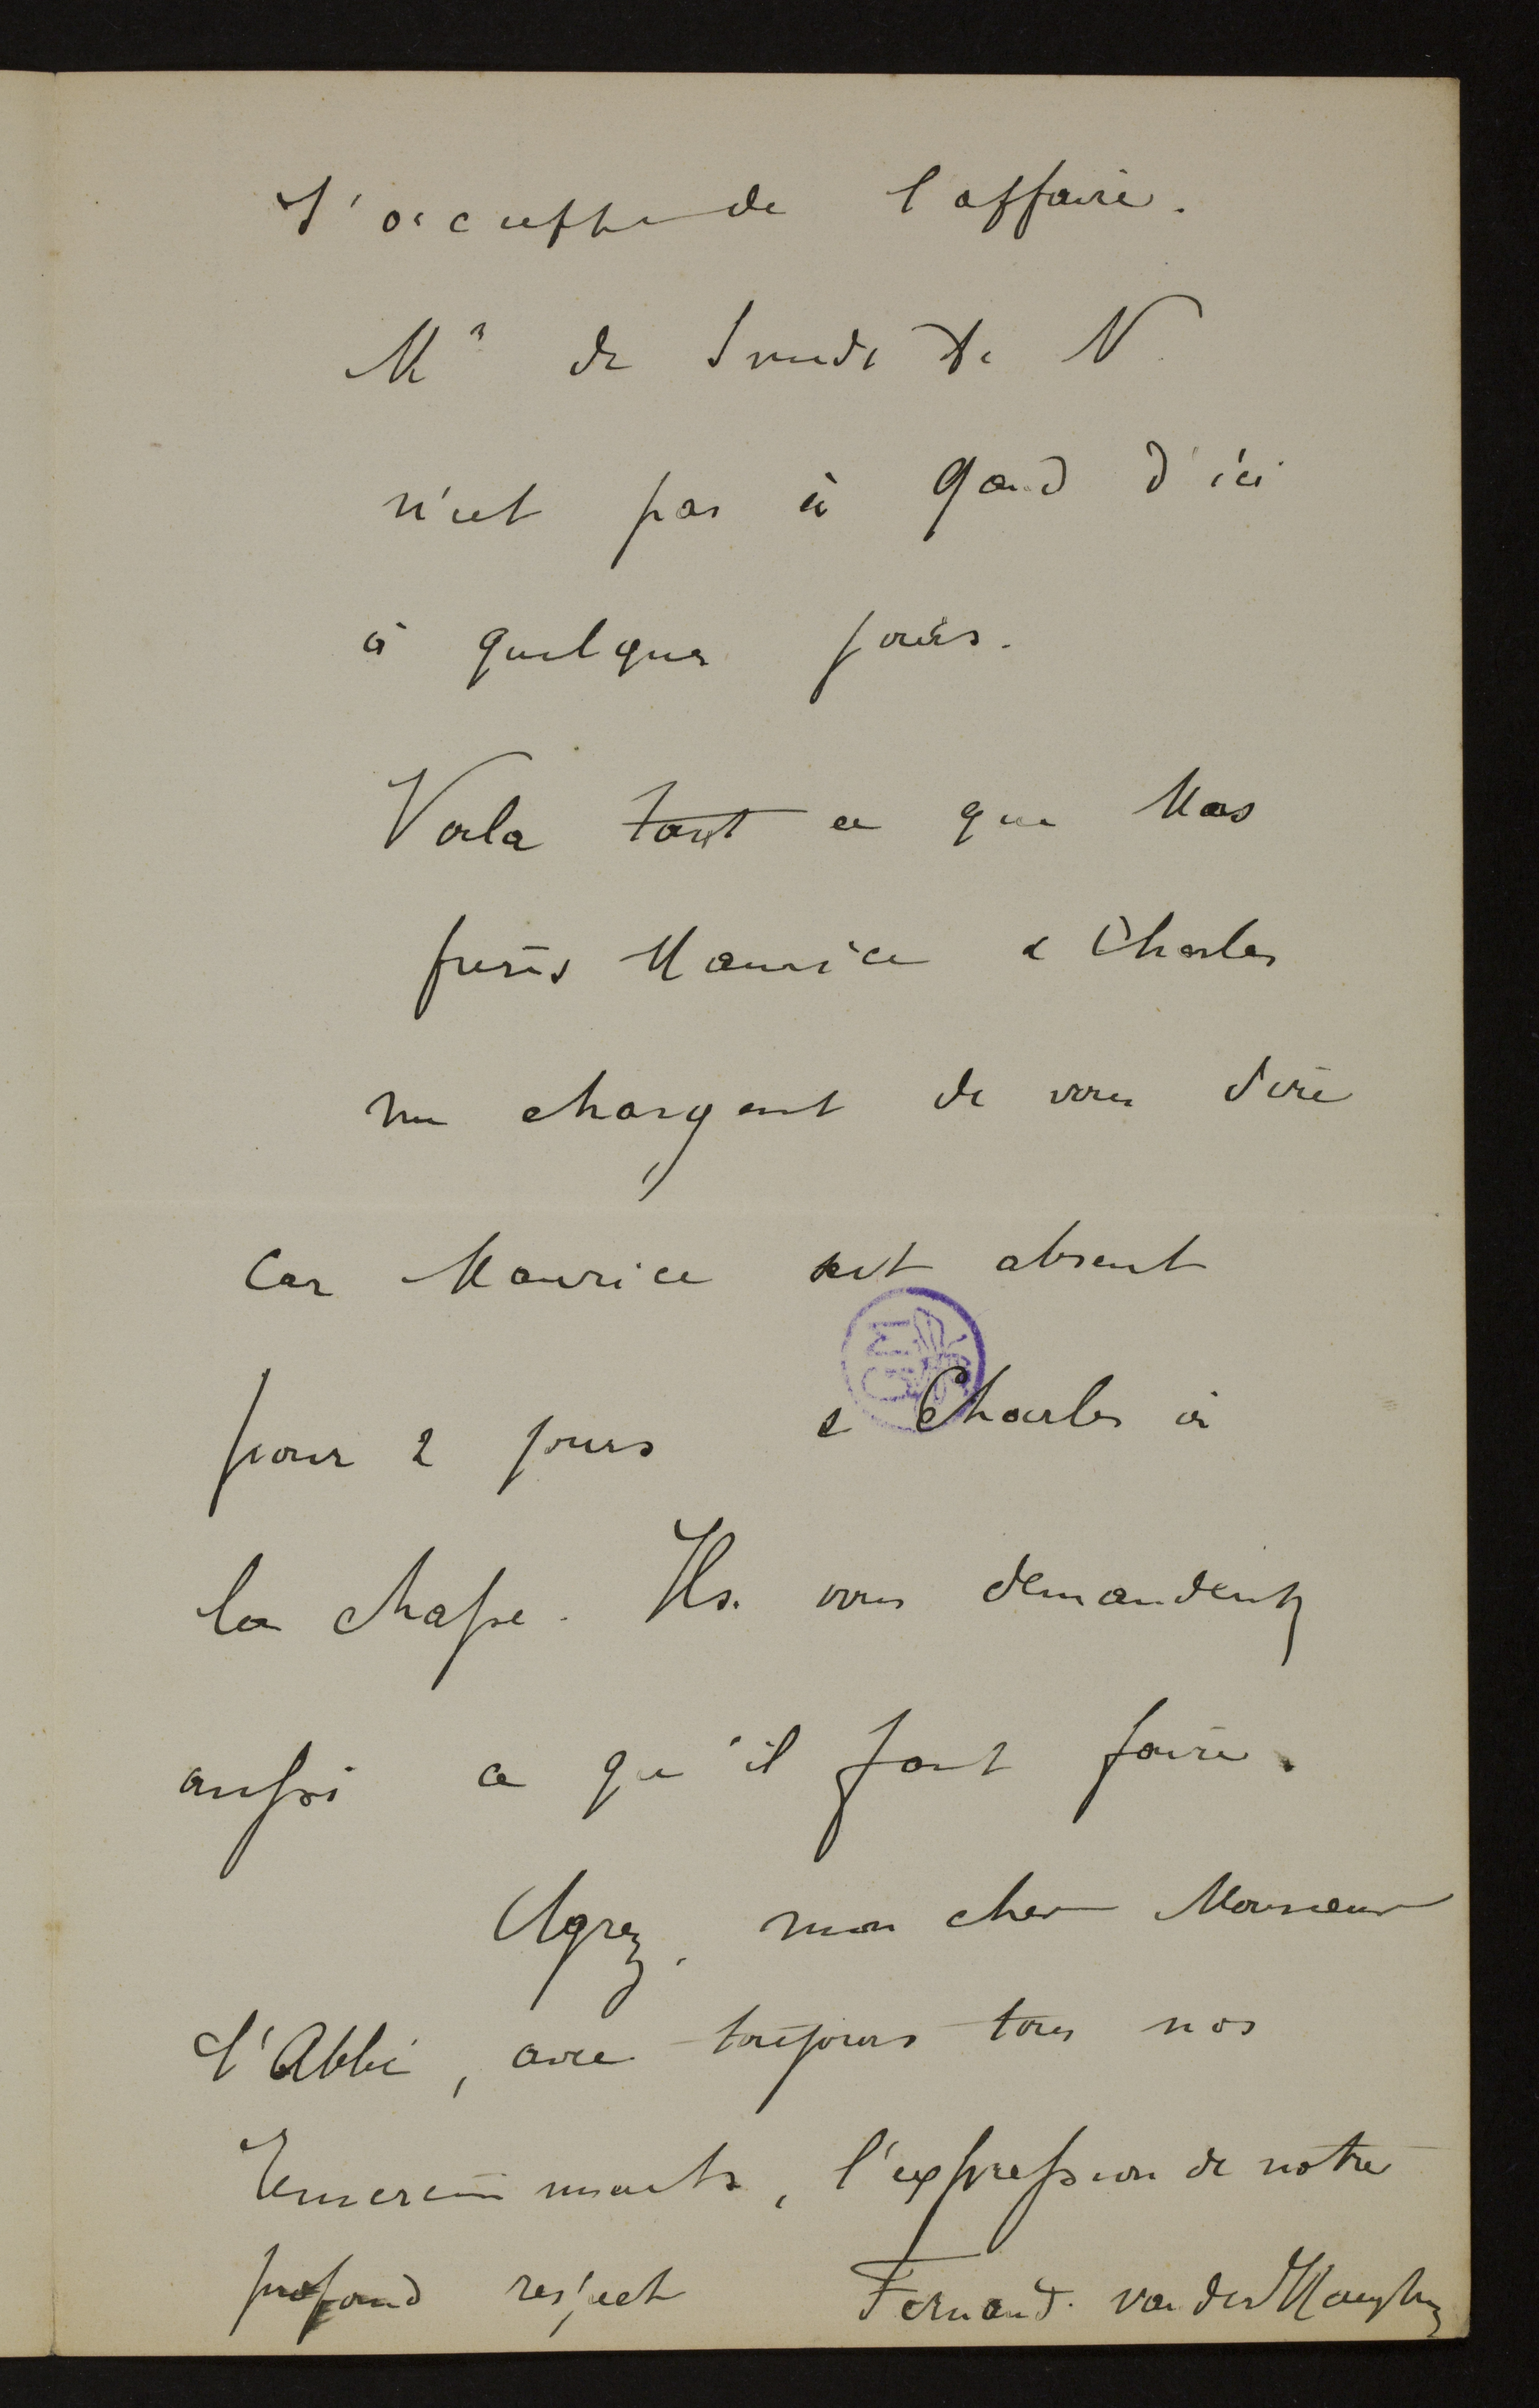 s'occupper de l'affaire.
Mr de Smedt de N.
n'est pas à Gand d'ici
à quelques jours.
Voila tout ce que Mes
frères Maurice & Charles
me chargent de vous dire
Car Maurice est absent
pour 2 jours & Charles à
la chasse. Ils vous demandent
aussi ce qu'il faut faire.
Agrez, mon cher Monsieur
l'Abbé, avec toujours tous nos
remerciements, l'expression de notre
profond respect Fernand van der Haeghen